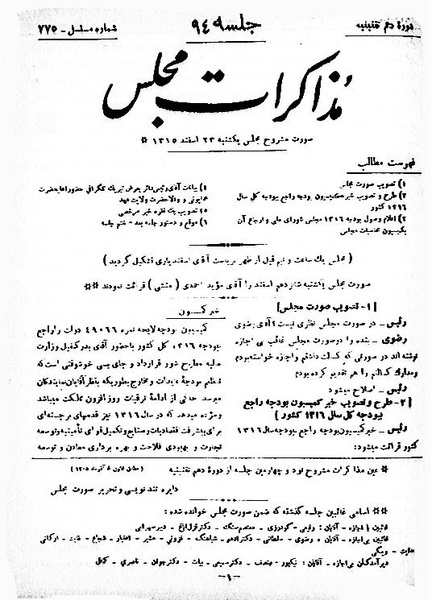 دورهٔ دهم تقنینیه
جلسه ۹۴
شماره مسلسل - ۷۷۵
مذاکرات مجلس
صورت مشروح مجلس یکشنبه ۲۳ اسفند ۱۳۱۵ *
فهرست مطالب
۱) تصویب صورت مجلس
۲) طرح و تصویب خبر کمیسیون بودجه راجع ببودجه کل سال ۱۳۱۶ کشور
۳) اعلام وصول بودجه ۱۳۱۶ مجلس شورای ملی و ارجاع آن بکمیسیون محاسبات مجلس
۴) بیانات آقای رئیس دائر بعرض تبریک تلگرافی حضور اعلیحضرت همایونی و والاحضرت ولایت عهد
۵) تصویب یک فقره خبر مرخصی
۶) موقع و دستور جلسه بعد - ختم جلسه
(مجلس یک ساعت و نیم قبل از ظهر بریاست آقای اسفندیاری تشکیل گردید)
صورت مجلس یکشنبه شانزدهم اسفند را آقای مؤید احمدی (منشی) قرائت نمودند **
[۱- تصویب صورت مجلس]
رئیس - در صورت مجلس نظری نیست؟ آقای رضوی
رضوی - بنده را دو صورت مجلس غائب بی اجازه
نوشته اند در صورتی که کسالت داشتم و اجازه خواسته بودم
ومدارک کسالتم را هم تقدیم کرده بودم
رئیس - اصلاح میشود
[۲- طرح و تصویب خبر کمیسیون بودجه راجع
ببودجه کل سال ۱۳۱۶ کشور]
رئیس - خبر کمیسیون بودجه راجع ببودجه سال ۱۳۱۶
کشور قرائت میشود:
خبر کمیسیون
کمیسیون بودجه لایحه نمره ۴۹۰۶۶ دولت را راجع
ببودجه ۱۳۱۶ کل کشور با حضور آقای بدر کفیل وزارت
مالیه مطرح شور قرارداد و جای بسی خوشوقتی است که
تنظیم بودجه عایدات و مخارج بطوریکه بنظر آقایان نمایندگان
میرسد حاکی از ادامهٔ ترقیات روز افزون مملکت میباشد
و مژده میدهد که در سال ۱۳۱۶ نیز قدمهای برجسته‌ای
برای پیشرفت اقتصادیات و صنایع و تکمیل قوای تأمینیه و توسعه
تجارت و بهبودی فلاحت و بهره برداری معادن و توسعه
* عین مذاکرات مشروح نود و چهارمین جلسه از دورهٔ دهم تقنینیه
دایره تند نویسی و تحریر صورت مجلس
** اسامی غائبین جلسه گذشته که ضمن صورت مجلس خوانده شده:
۱